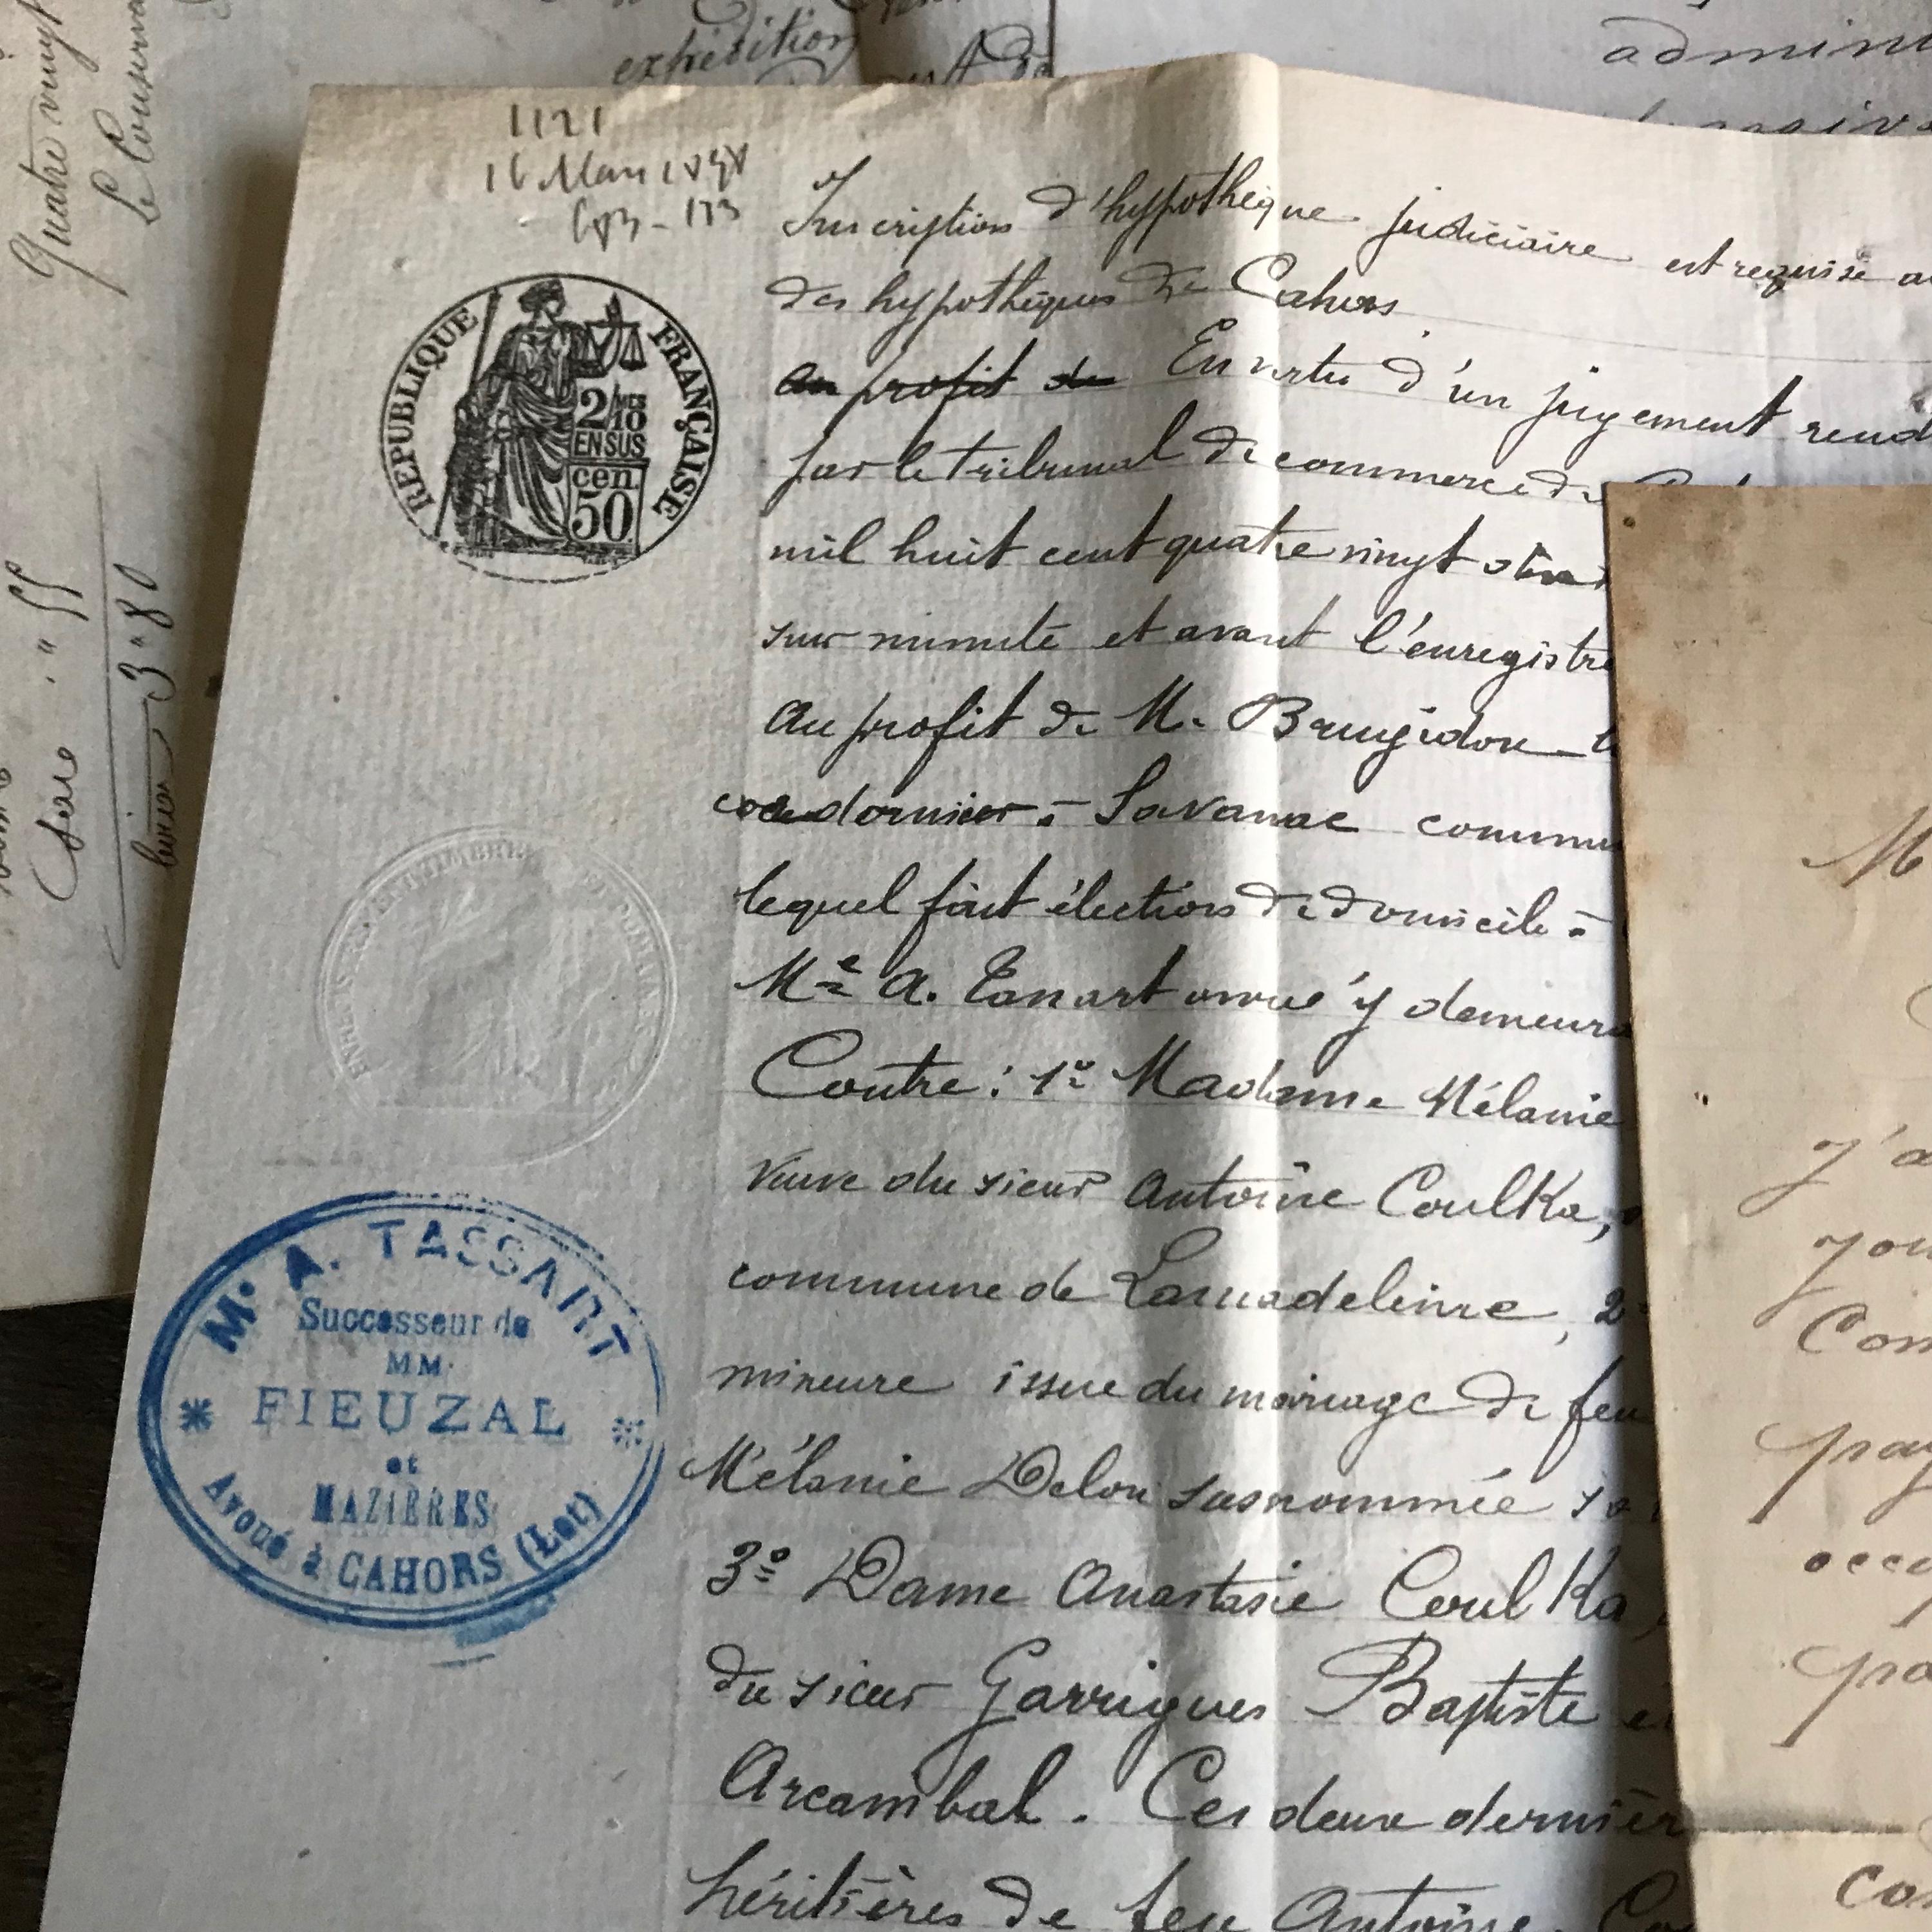 expédition
admin
Quatre vingt
1121
Inscription d'hypothèque judiciaire est requise au
des hypothèques de Cahors
au profit de En vertu d'un jugement rend
par le tribunal de commerce de
mil huit cent quatre vingt
sur minute et avant l'enregistre
au profit de M. Brugidou
cordonnier à Savanac commu
lequel fait élection de domicile à
Me A. Tassart avoué y demeura
Contre : 1º Madame Mélanie
veuve du sieur Antoine Coulka,
commune de Lamadeleine, 2º
mineure issue du mariage de feu
Mélanie Delon susnommée
3º Dame Anastasie Coulka
du sieur Garrigues Baptiste
Arcambal. Ces deux dernièr
héritières de feu Antoine Co
REPUBLIQUE FRANÇAISE
2/MES 10
EN SUS
cen.
50
Me A. TASSART
Successeur de
MM.
FIEUZAL
et
MAZIÈRES
Avoué à CAHORS (Lot)
3"80
M
j'a
Com
pay
occ
pa
co